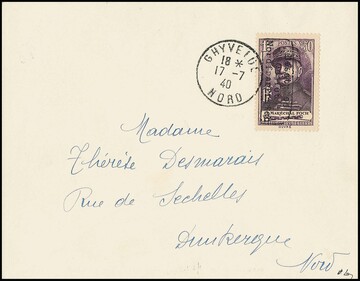 GHYVELDE
18 *
17 -7
40
NORD
50
MARECHAL FOCH
Madame
Thérèse Desmarais
Rue de Sechelles
Dunkerque
Nord